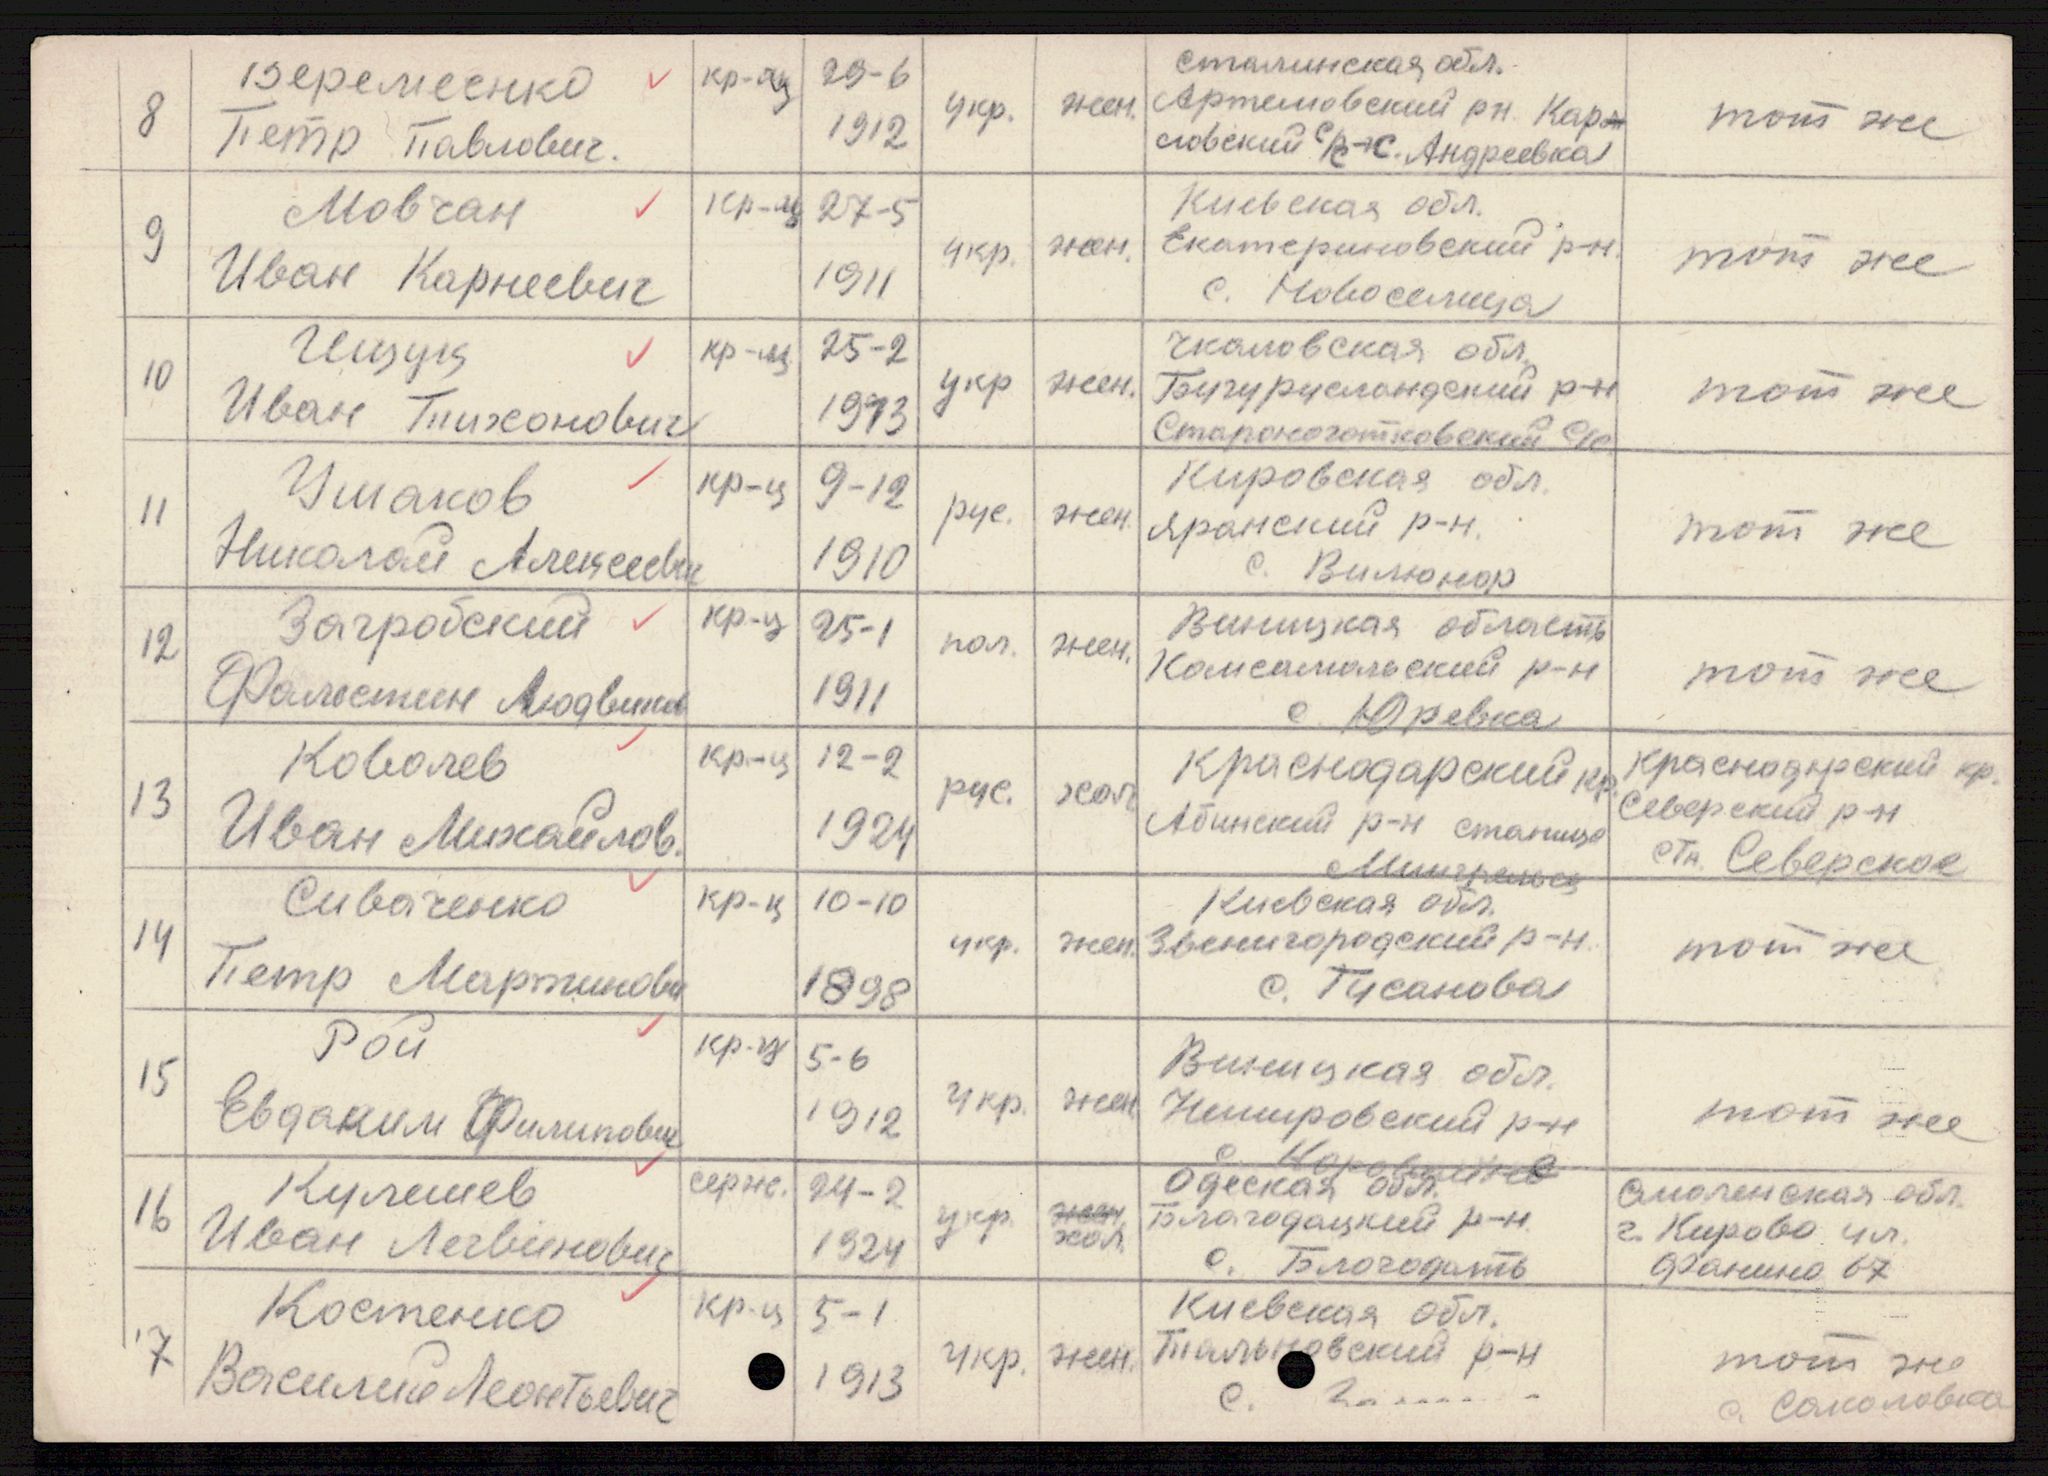 8 Веремеенко кр-ц 29-6 1912 укр. жен. Сталинская обл. тот же
Петр Павлович. Артемовский рн. Кар
ловский с/с с. Андреевка
9 Мовчан кр-ц 27-5 1911 укр. жен. Киевская обл. тот же
Иван Карнеевич Екатериновский р-н.
с. Новоселица
10 Ищук кр-ц 25-2 1913 укр жен. Чкаловская обл. тот же
Иван Тихонович Бугурусландский р-н
11 Ушаков кр-ц 9-12 1910 рус. жен. Кировская обл. тот же
Николай Алексеевич Яранский р-н.
с. Вилюнор
12 Загробский кр-ц 25-1 1911 пол. жен. Виницкая область тот же
Фальстин Людвигов Комсамольский р-н
с. Юревка
13 Ковалев кр-ц 12-2 1924 рус. хол. Краснодарский кр. Краснодарский кр.
Иван Михайлов. Абинский р-н станица Северский р-н
Мингрельск стн. Северское
14 Сиваченко кр-ц 10-10 1898 укр. жен. Киевская обл. тот же
Петр Мартинович Звенигородский р-н.
с. Гусанова
15 Рой кр-ц 5-6 1912 укр. жен. Виницкая обл. тот же
Евдаким Филипович Немировский р-н
с.
16 Кулешев серж. 24-2 1924 укр. жен. хол. Одеская обл. Смоленская обл.
Иван Легвинович Благодацкий р-н. г. Кирово ул.
с. Благодать Фанино 67
17 Костенко кр-ц 5-1 1913 укр. жен. Киевская обл. тот же
Василий Леонтьевич Тальновский р-н с. Соколовка
с.